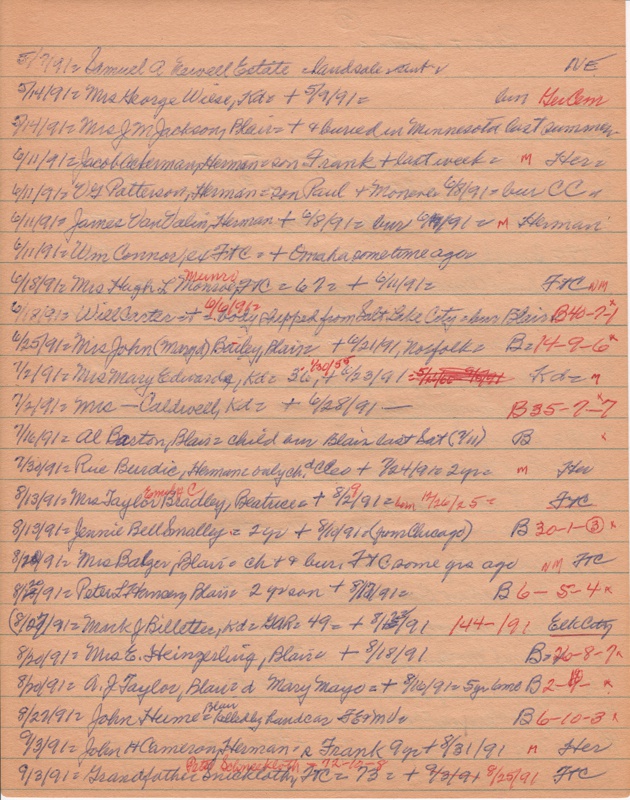 5/7/91= Samuel A Newell Estate landsale NE
5/14/91= Mrs George Wiese, Kd= + 5/9/91= bur Ger Cem
5/14/91= Mrs J M Jackson, Blair= + & buried in Minnesota last summer
6/11/91= Jacob Ackerman, Herman= son Frank + last week= M Her=
6/11/91= V G Patterson, Herman= son Paul + Monona 6/8/91= bur CC
6/11/91= James Van Valin, Herman + 6/8/91= bur 6/9/91= M Herman
6/11/91= Wm Connor, ex FtC= + Omaha sometime ago
Munri
6/18/91= Mrs Hugh L Monroe, FtC= 67= + 6/11/91= FtC NM
6/6/91=
6/18/91= Will Carter= + = body shipped from Salt Lake City= bur Blair B40-7-1 x
6/25/91= Mrs John (Mary d) Bailey, Blair= + 6/21/91, Norfolk= B=14-9-6 x
1/30/55
7/2/91= Mrs Mary Edwards, Kd= 36, + 6/23/91= Kd= M
7/2/91= Mrs — Caldwell, Kd= + 6/28/91 — B35-7-7 x
7/16/91= Al Barton, Blair= child bur Blair last Sat (7/11) B x
7/30/91= Rue Burdic, Herman= only ch. Cleo + 7/24/91= 2yr= M Her
Emily C
8/13/91= Mrs Taylor Bradley, Beatrice= + 8/2/91= born 12/26/25= FtC
8/13/91= Jennie Bell Smalley= 2 yr + 8/10/91= (from Chicago) B 30-1-3 x
8/20/91= Mrs Balzer, Blair= ch + & bur, FtC some yrs ago NM FtC
Peter L Hansen, Blair= 2 yr son + B6-5-4 x
(8/27/91= Mark J Billetter, Kd= GAR= 49= + 144-191 Elk City
8/20/91= Mrs E. Heingerling, Blair + 8/18/91 B=20-8-7 x
8/20/91= A. J Taylor, Blair= d Mary Mayo= + 8/16/91= 5yr 6mo B2- x
Blair
8/27/91= John Hume= killed by handcar B6-10-3 x
9/3/91= John H Cameron, Herman= s Frank 9yr + 8/31/91 M Her
Peter Schneckloth = 72-10-8
9/3/91= Grandfather FtC= 73= + 8/25/91 FtC